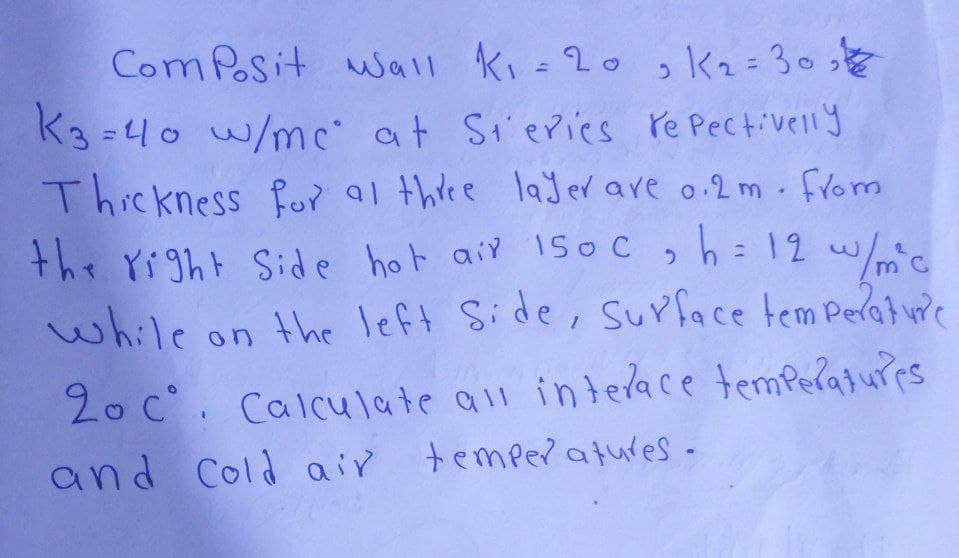 ComPosit wall K₁ = 20 , K₂ = 30 ,
K₃ = 40 w/mc° at Sieries rePectivelly
Thickness for al three layer are 0.2 m . from
the right Side hot air 150 C , h = 12 w/m²c
while on the left Side, Surface temPerature
20 c° . Calculate all interace temPeratures
and Cold air temperatures .